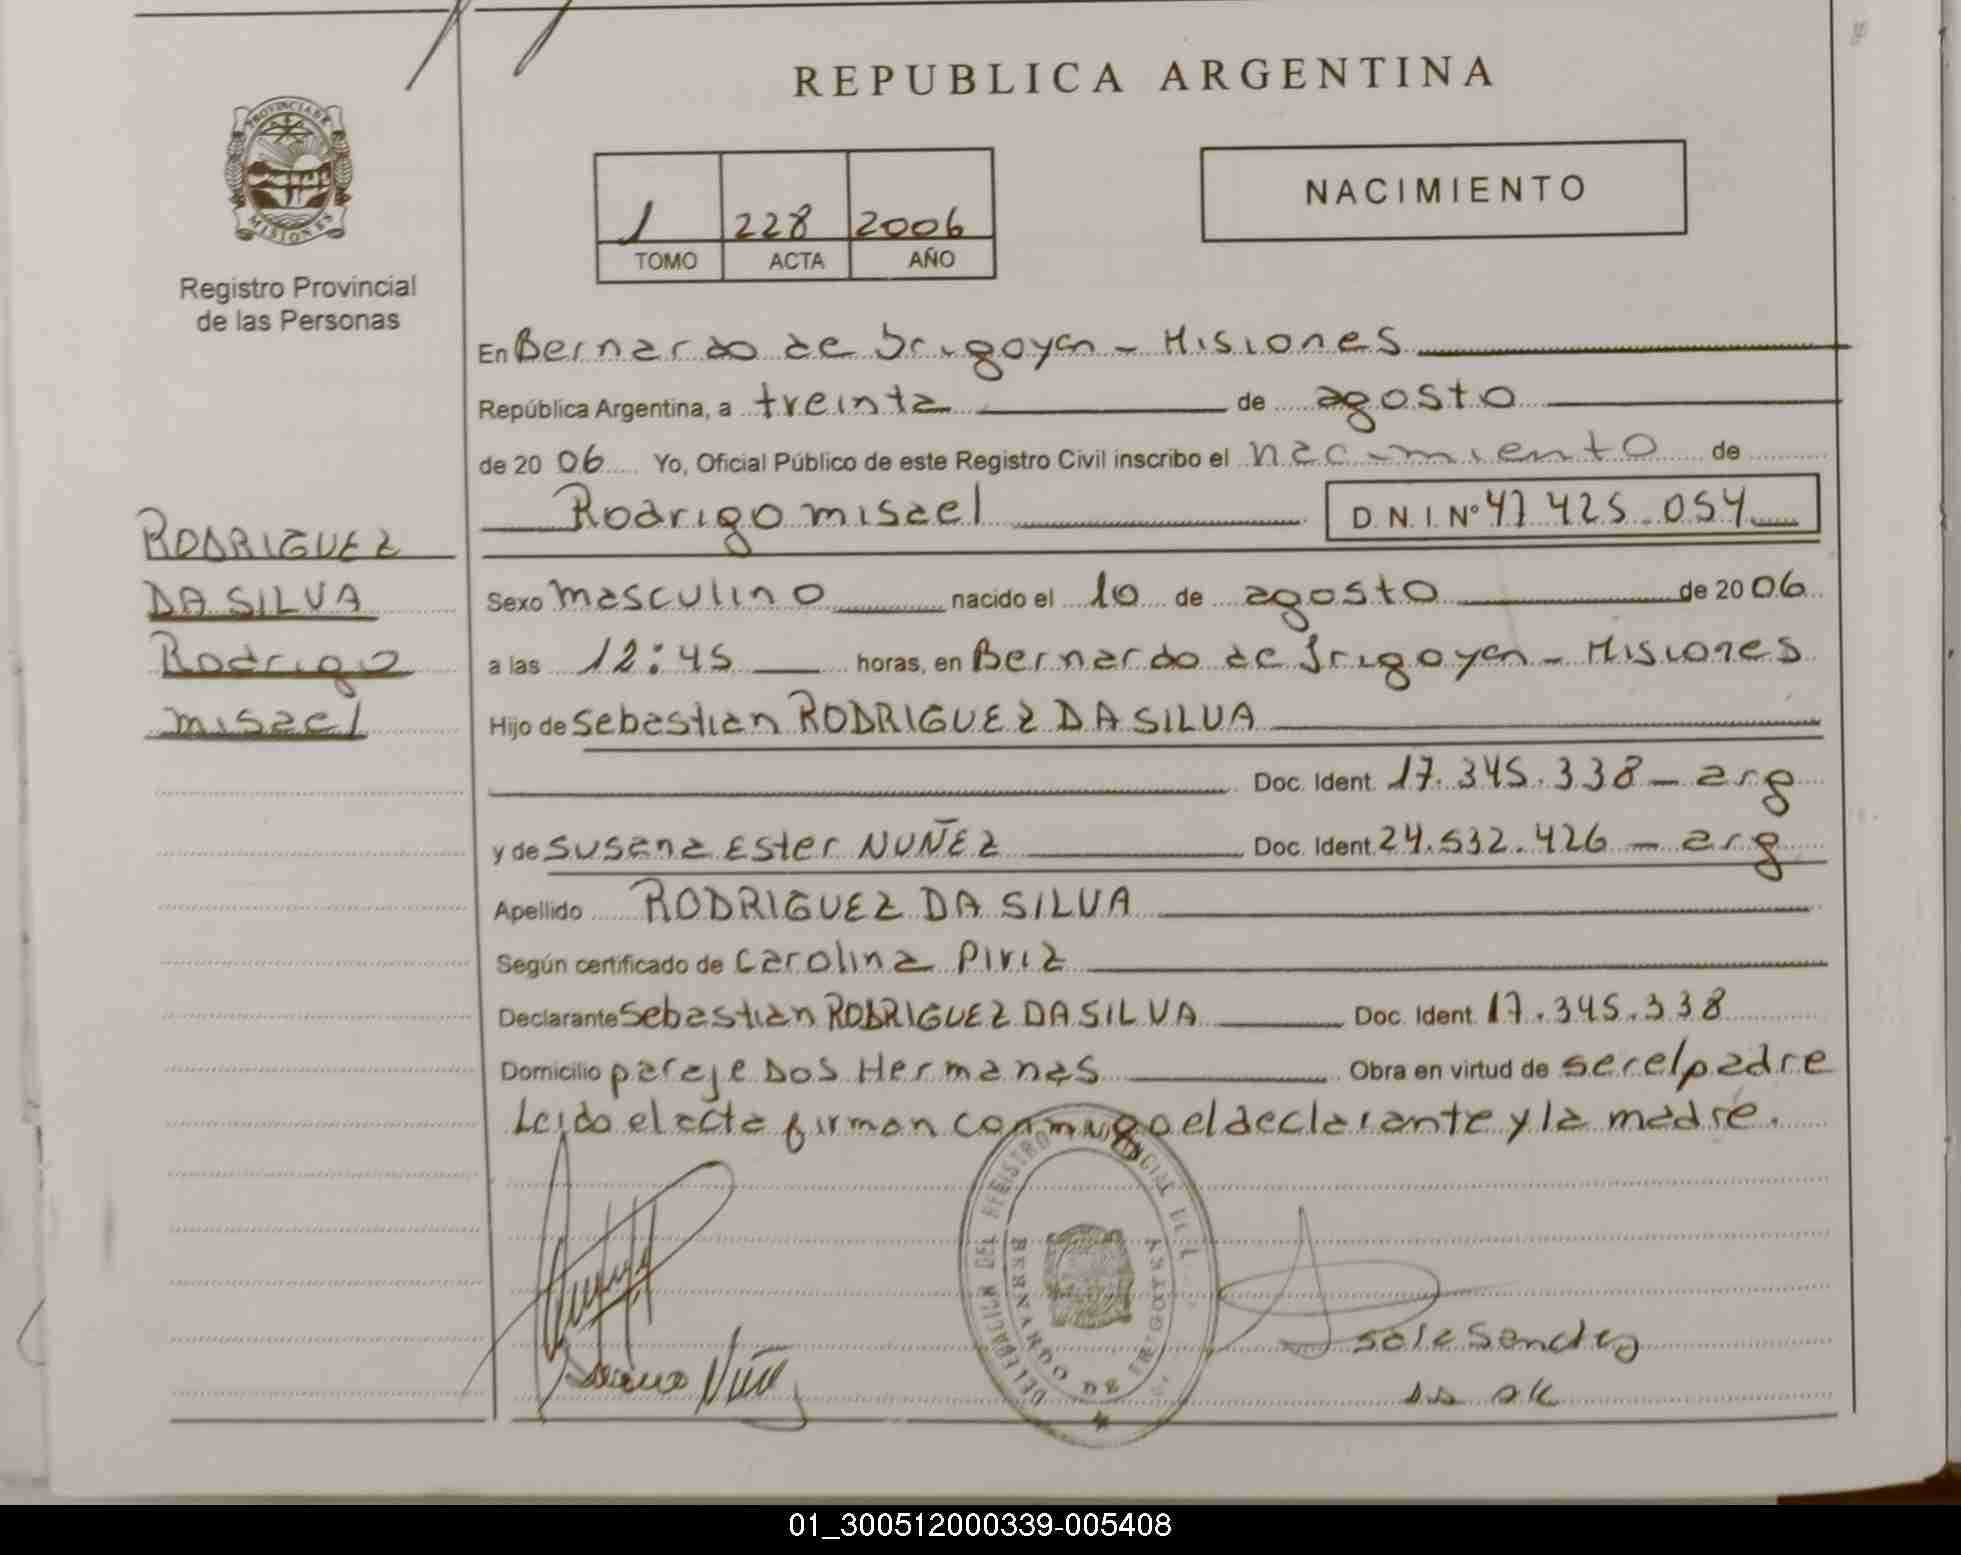 REPUBLICA ARGENTINA
PROVINCIA DE
MISIONES
Registro Provincial
de las Personas
1 228 2006
TOMO ACTA AÑO
NACIMIENTO
En Bernardo de Irigoyen - Misiones
República Argentina, a treinta de agosto
de 20 06 Yo, Oficial Público de este Registro Civil inscribo el nacimiento de
Rodrigo misael D.N.I. Nº 47 425.054
RODRIGUEZ
DA SILVA
Rodrigo
misael
Sexo masculino nacido el 10 de agosto de 20 06
a las 12:45 horas, en Bernardo de Irigoyen - Misiones
Hijo de Sebastian RODRIGUEZ DA SILVA
Doc. Ident. 17.345.338 - arg
y de Susana Ester NUÑEZ Doc. Ident. 24.532.426 - arg
Apellido RODRIGUEZ DA SILVA
Según certificado de Carolina Piriz
Declarante Sebastian RODRIGUEZ DA SILVA Doc. Ident. 17.345.338
Domicilio paraje Dos Hermanas Obra en virtud de ser el padre
Leido el acta firman conmigo el declarante y la madre.
DELEGACION DEL REGISTRO PROVINCIAL DE L
BERNARDO DE IRIGOYEN
01_300512000339-005408